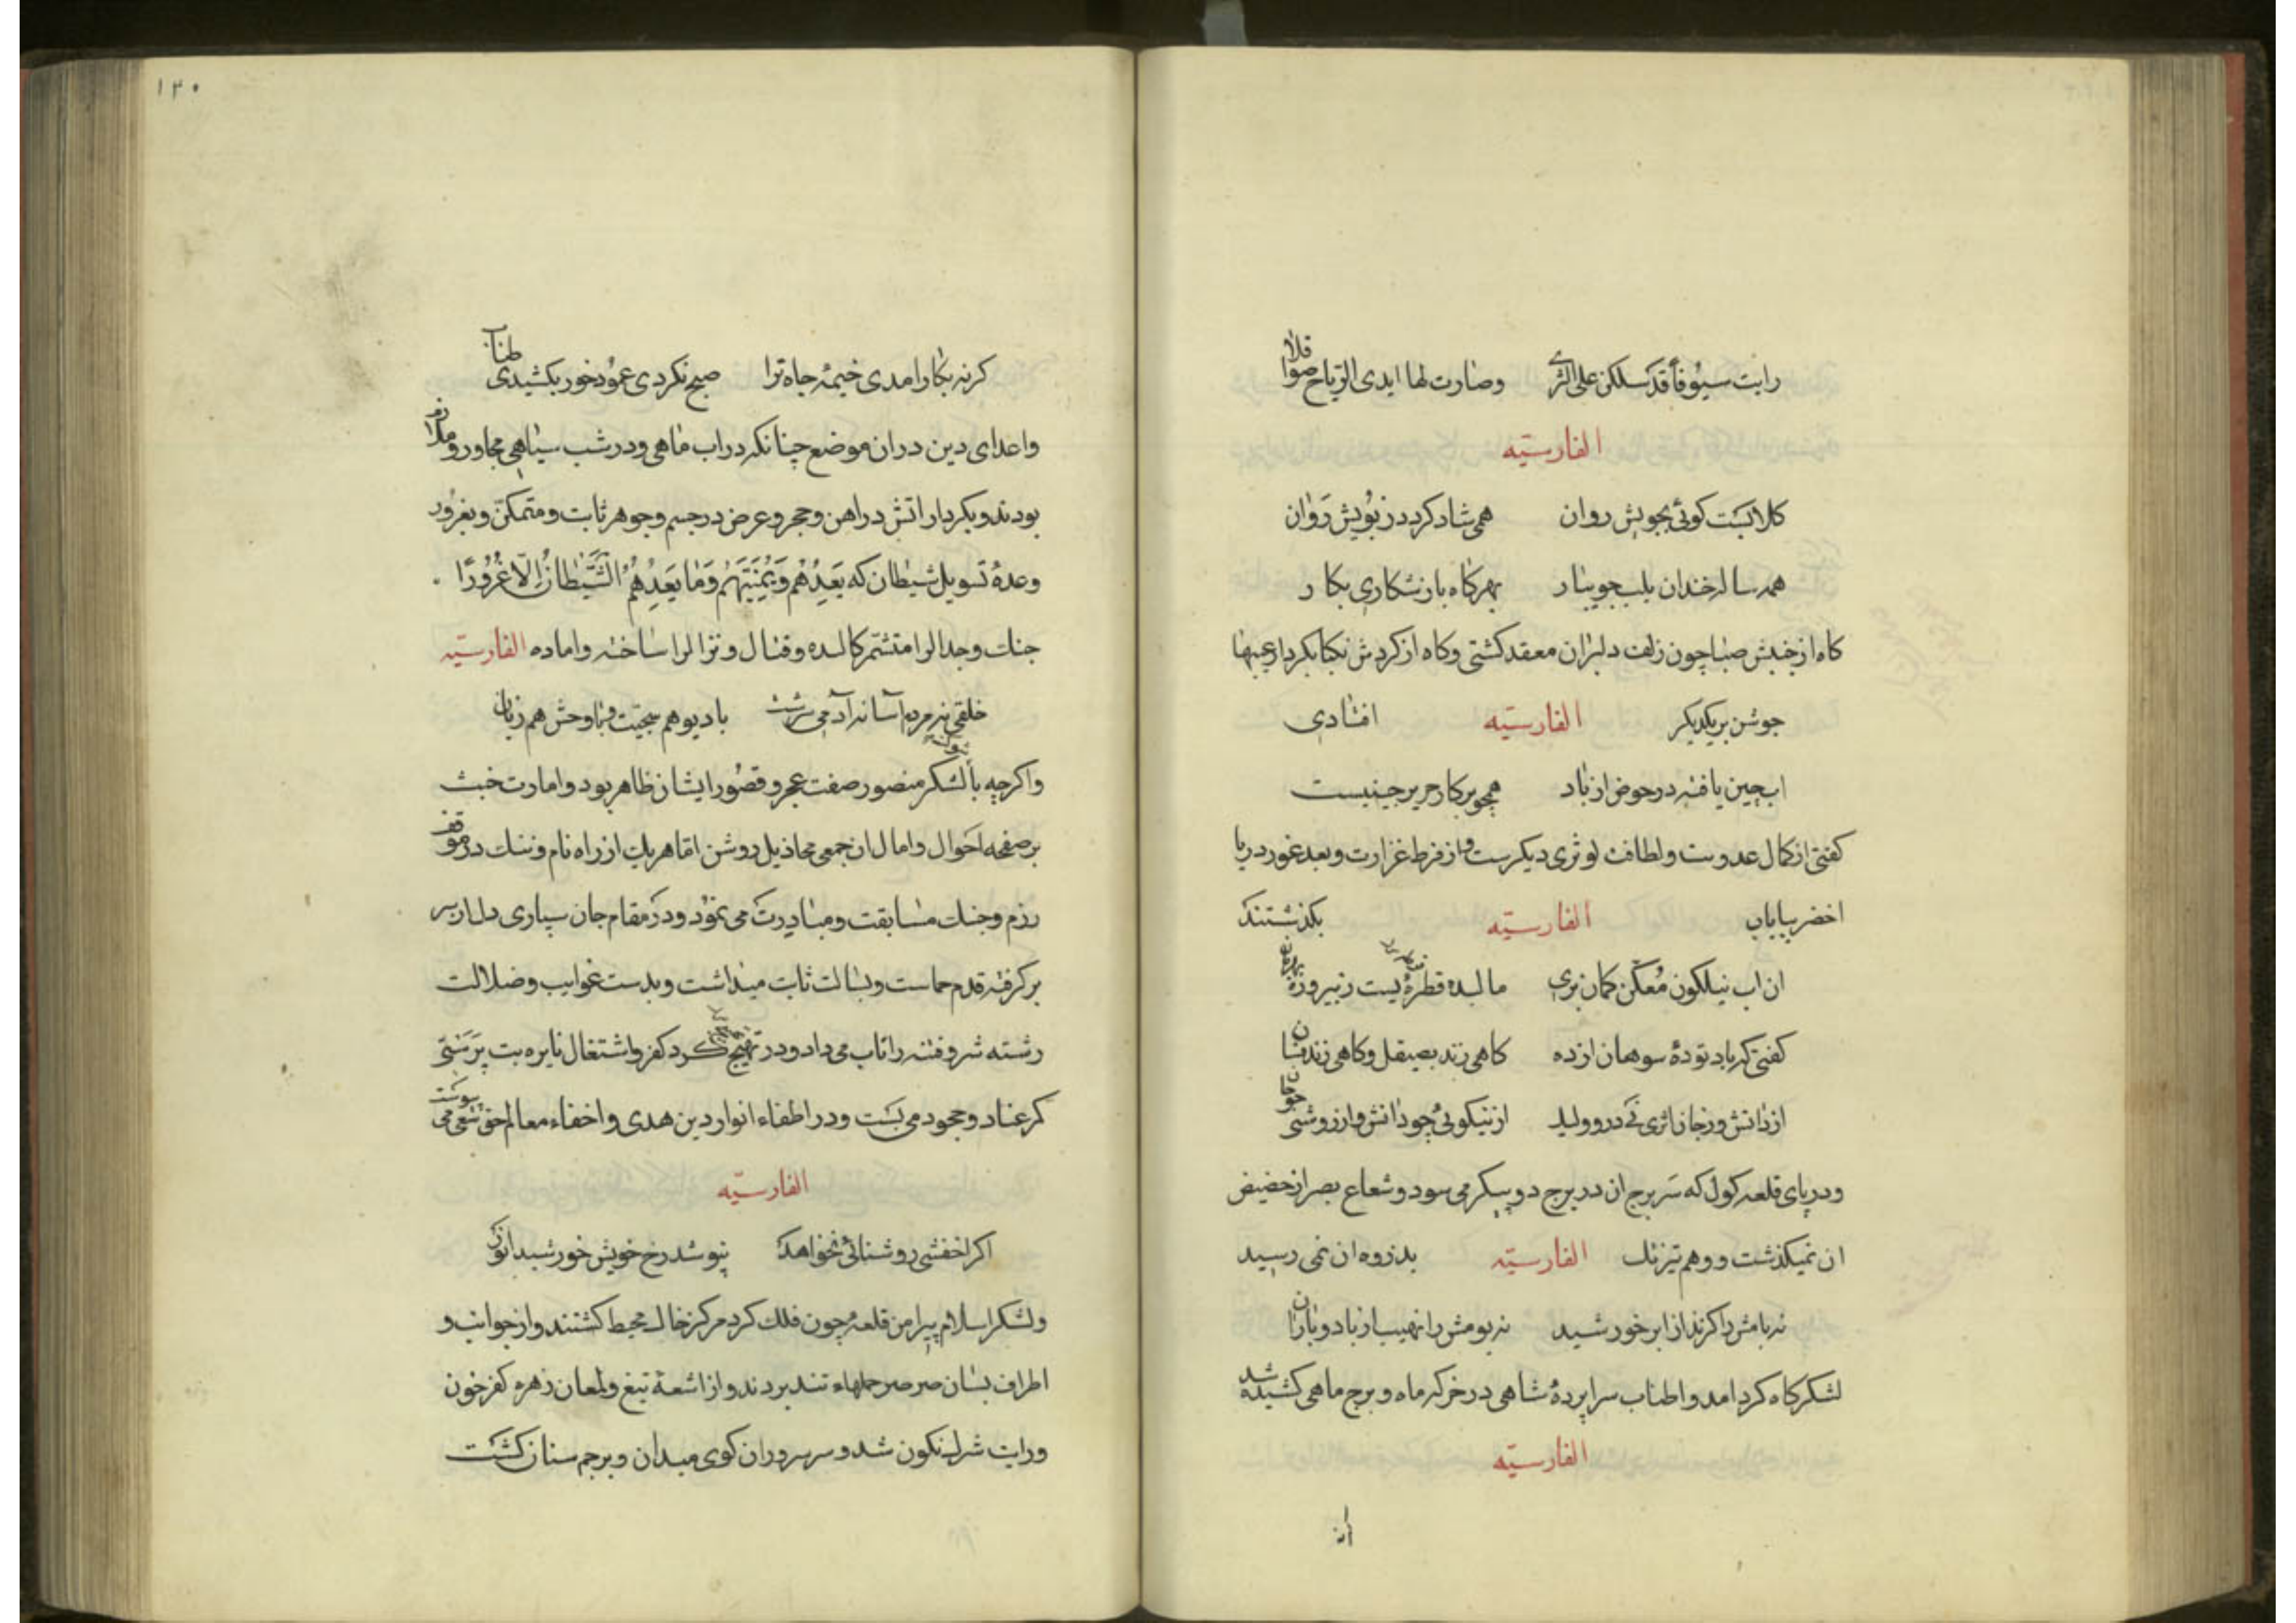 رایت سیوفا قد سللن علی الثری وصارت لها ایدی الریاح صواقلا
الفارسیّه
کلابست کوئی بجویش روان همی شاد کردد زبویش رَوان
همه ساله خندان بلب جویبار بهر کاه باز شکاری بکار
کاه از جنبش صبا چون زلف دلبران معقد کشتی وکاه از کردش نکبا بکردار عیبها
جوشن بریکدیکر الفارسیّه افتادی
اب چین یافته در حوض از باد همچو پرکار حریر چینیست
کفتی از کمال عذوبت ولطافت کوثری دیکرست واز فرط غزارت وبعد غور دریا
اخضر بپایاب الفارسیّه بکذشتند
ان اب نیلکون مُعکّن کمان بری مالیده قطرهٔ یست زپیروزه
کفتی که باد تودهٔ سوهان ازده کاهی زند بصیقل وکاهی زند فسان
از دانش وز جان اثری نی درو ولیک از نیکویی چو دانش واز روشنی چو جان
ودر پای قلعه کول که سَر برج ان در برج دو پیکر می سود وشعاع بصر از حضیض
ان نمیکذشت ووهم تیزتک الفارسیّه بذروه ان نمی رسید
نه بامش را کزند از ابر خورشید نه بومش را نهیب از باد وباران
لشکرکاه کرد امد واطناب سراپردهٔ شاهی در خرکه ماه وبرج ماهی کشیده شد
الفارسیّه
۱۲۰
کر نه بکار امدی خیمهٔ جاه ترا صبح نکردی عمود خور بکشیدی طناب
واعدای دین دران موضع چنانکه در اب ماهی ودر شب سیاهی مجاور وملازم
بودند وبکردار اتش در اهن وحجر وعرض در جسم وجوهر ثابت ومتمکّن وبغرور
وعدهٔ تسویل شیطان که یَعِدُهُم وَیُمَنّیهِم وَمَا یَعِدُهُم الشَّیطَانُ اِلّا غُرُورًا .
جنک وجدال را متشمّر کالیده وقتال ونزال را ساخته واماده الفارسیّه
خلقی نه مردم آسا نه آدمی سرشت با دیو هم سجیّت وبا وحش هم زبان
واکرچه با لشکر منصور صفت عجز وقصُور ایشان ظاهر بود وامارت خبث
بر صفحه احَوال وامال ان جمعی مخاذیل روشن اما هریک از راه نام وننک در موقف
رزم وجنک مسابقت ومبادرت می نمود ودر مقام جان سپاری دل از سر
برکرفته قدم حماست وبسالت ثابت میداشت وبدست غوایت وضلالت
رشته شر وفتنه را تاب می داد ودر تهییج کرد کفر واشتغال نایره بت پرَستی
کمر عناد وجحود می بست ودر اطفاء انوار دین هدی واخفاء معالم حق سعی می پیوست
الفارسیّه
اکر اخفشی روشنائی نخواهد نپوشد رخ خویش خورشید انور
ولشکر اسلام پیرامن قلعه چون فلک کرد مرکز خاک محیط کشتند واز جوانب و
اطراف بسان صرصر حملهاء تند بردند واز اشعهٔ تیغ ولمعان زهره کفر خون
ورایت شرک نکون شد وسر سروران کوی میدان وپرچم سنان کشت